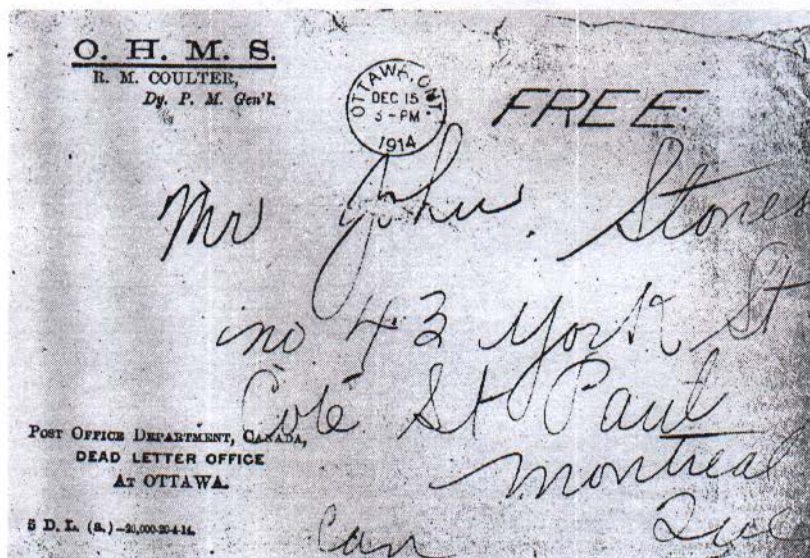 O. H. M. S.
R. M. COULTER,
Dy. P. M. Gen'l.
OTTAWA, ONT.
DEC 15
3 - PM
1914
FREE.
Mr John Stones
no 43 York St
Cote St Paul
Montreal
Que
Can
POST OFFICE DEPARTMENT, CANADA,
DEAD LETTER OFFICE
AT OTTAWA.
5 D. L. (a.)—20,000-20-4-14.